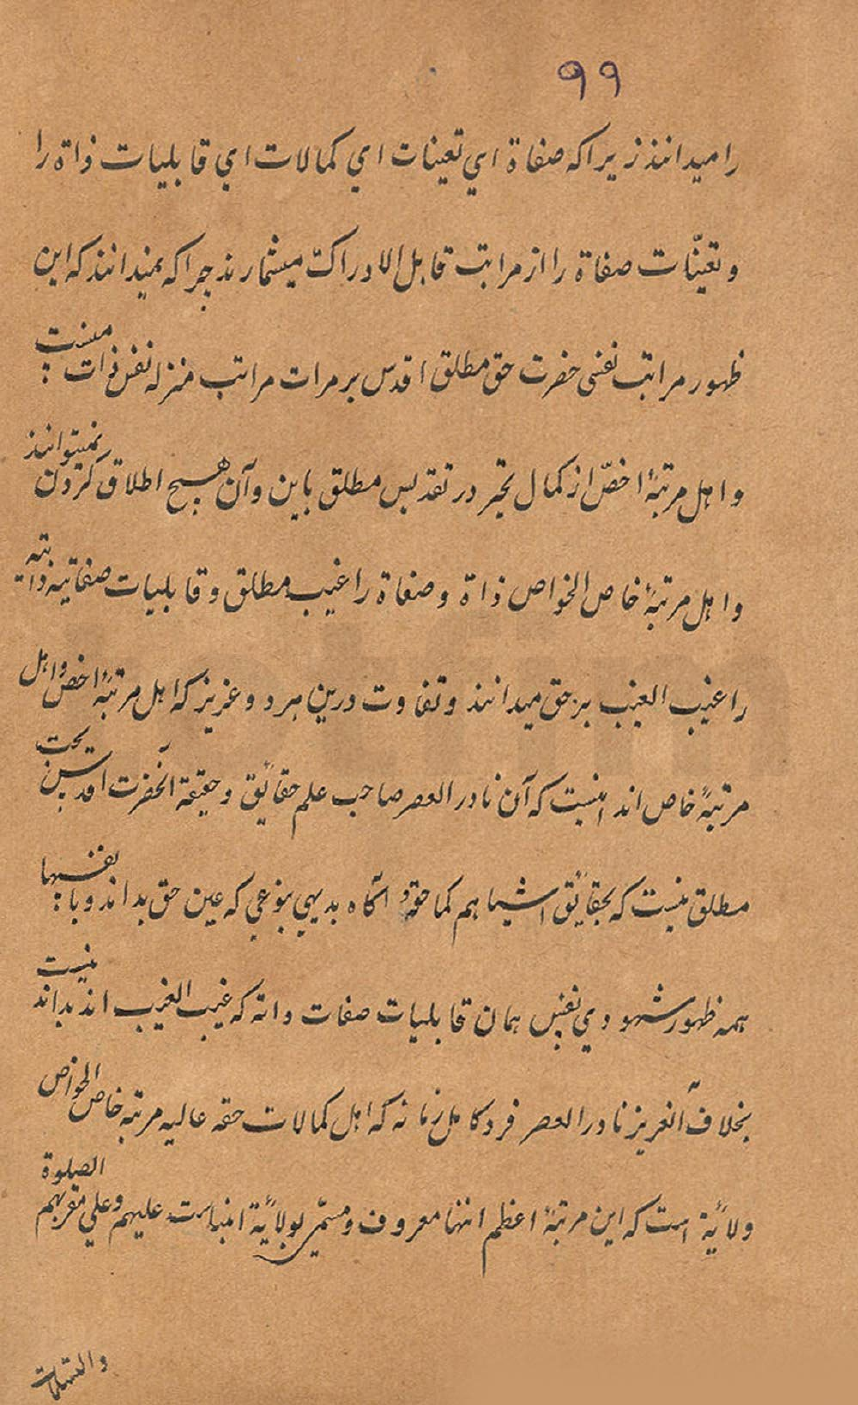 ۹۹
را میدانند زیرا که صفاة ای تعینات ای کمالات ای قابلیات ذاة را
و تعیّنات صفاة را از مراتب قابل الادراک میشمارند چرا که میدانند که این
ظهور مراتب نفسی حضرت حق مطلق اقدس بر مرات مراتب منزله نفس ذات نیست
و اهل مرتبهٔ اخصّ از کمال تحیر در تقدیس مطلق باین و آن هیچ اطلاق کردن نمیتوانند
و اهل مرتبهٔ خاص الخواص ذاة و صفاة را غیب مطلق و قابلیات صفاتیه ذاتیه
را غیب الغیب بر حق میدانند و تفاوت درین هر دو عزیز که اهل مرتبهٔ اخص و اهل
مرتبهٔ خاص اند اینست که آن نادر العصر صاحب علم حقایق و حقیقة آنحضرت اقدس بحت
مطلق نیست که بحقایق اشیا هم کما حقه آگاه بدیهی بنوعی که عین حق بداند و با نفسها
همه ظهور شهودی نفس همان قابلیات صفات که غیب الغیب اند بداند نیست
بخلاف آنعزیز نادر العصر فرد کامل زمانه که اهل کمالات حقه عالیه مرتبه خاص الخواص
ولایة است که این مرتبهٔ اعظم انتها معروف و مسمّی بولایة انبیاست علیهم و علی مقربهم الصلوة
والتسلیمات